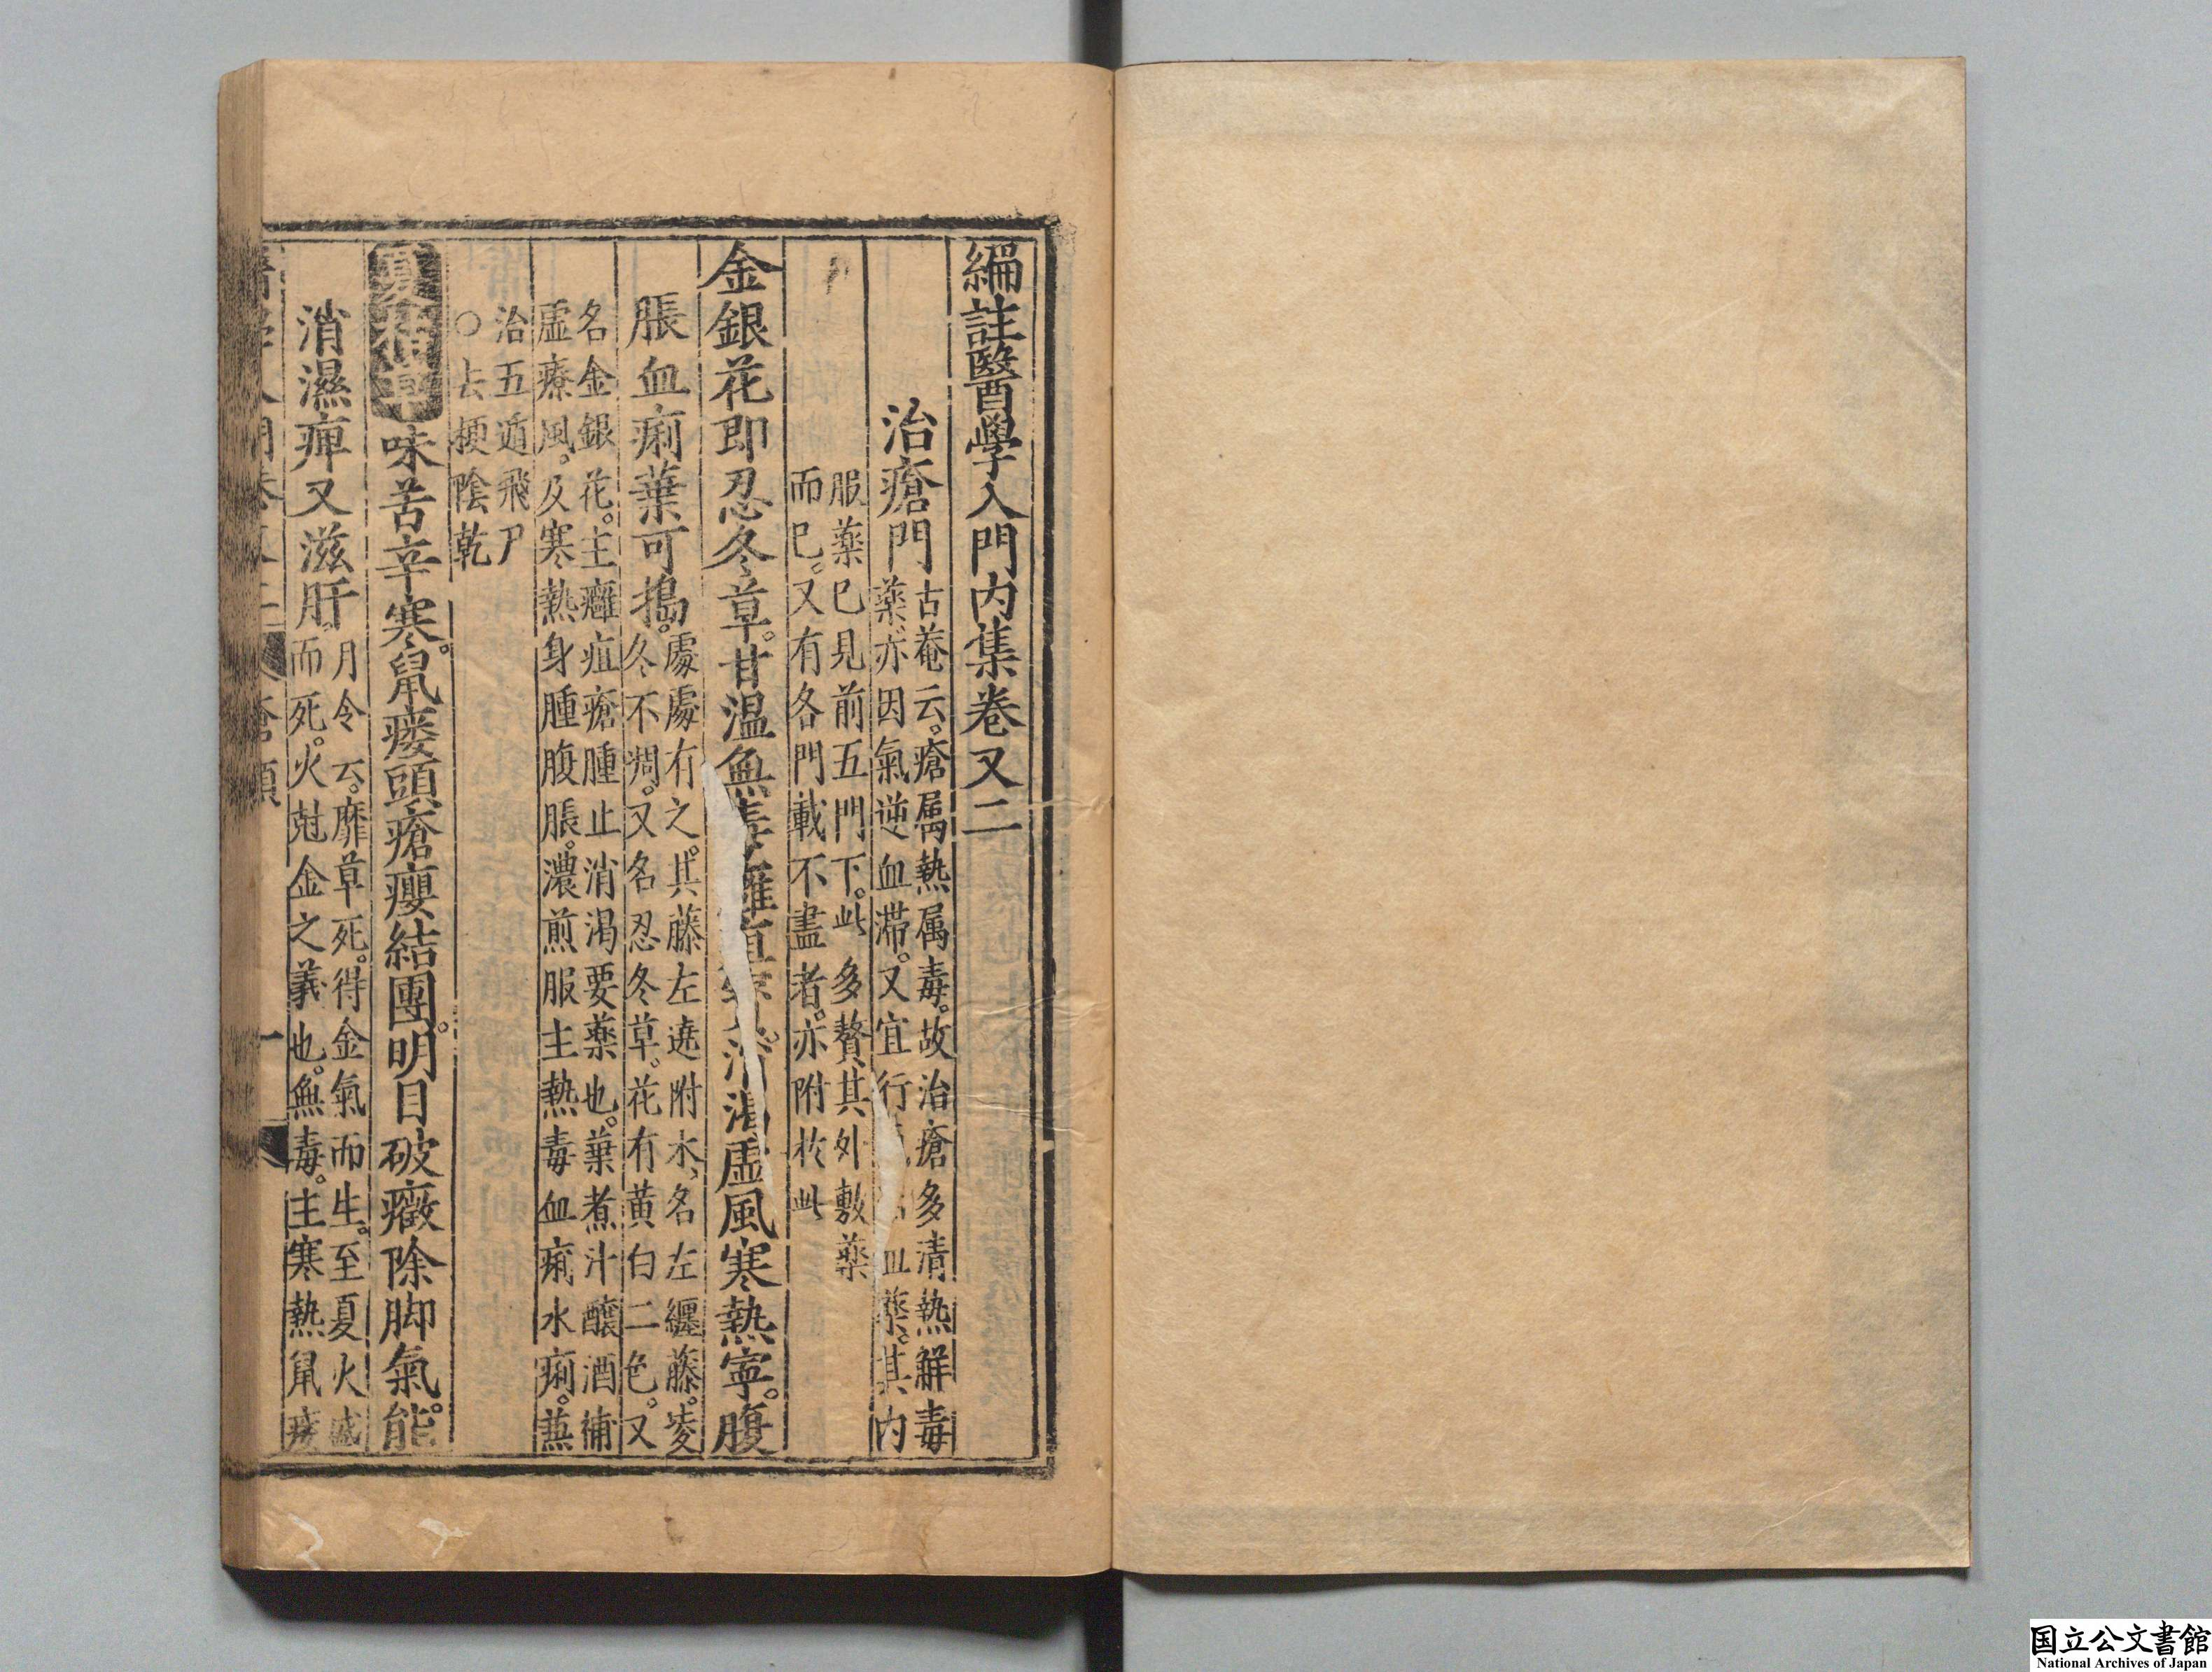 編註醫學入門內集卷又二
治瘡門
古菴云。瘡属熱属毒。故治瘡多清熱解毒
藥亦因氣逆血滯。又宜行血藥。其内
服藥已見前五門下。此多贅其外敷藥
而已。又有各門載不盡者。亦附於此
金銀花即忍冬草。甘温無毒癰疽消渴虛風寒熱寧。腹
脹血痢葉可搗。
處處有之。其藤左遶附木、名左纏藤。凌
冬不凋。又名忍冬草。花有黄白二色。又
名金銀花。主癰疽瘡腫止消渴要藥也。葉煮汁釀酒補
虛療風。及寒熱身腫腹脹。濃煎服主熱毒血痢水痢。兼
治五遁飛尸
○去梗陰乾
夏枯草味苦辛寒。鼠瘻頭瘡癭結團。明目破癥除脚氣。能
消濕痺又滋肝
月令云。靡草死。得金氣而生。至夏火盛
而死。火尅金之義也。無毒。主寒熱鼠瘻
瘡類
一
国立公文書館
National Archives of Japan